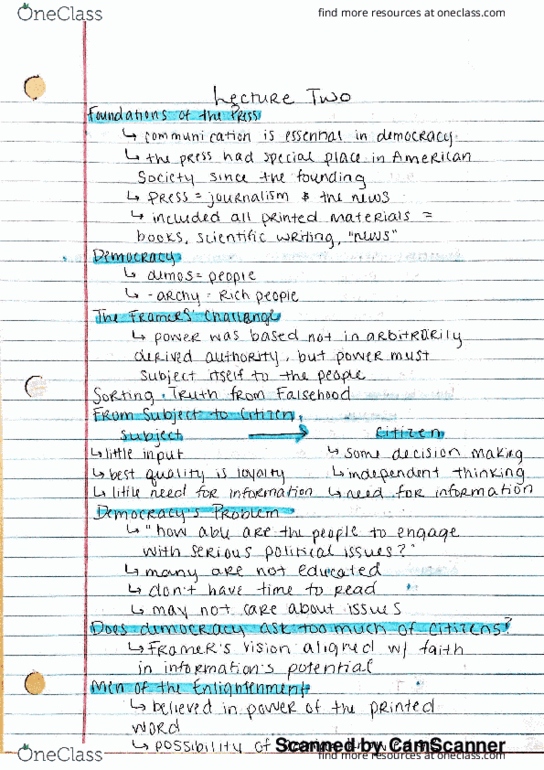 OneClass
find more resources at oneclass.com
Lecture Two
Foundations of the Press
↳ communication is essential in democracy.
↳ the press had special place in American
Society since the founding
↳ press = journalism & the news
↳ included all printed materials =
books, scientific writing, "news"
Democracy
↳ dimos = people
↳ -archy = Rich people
The Framers' Challenge
↳ power was based not in arbitrarily
derived authority, but power must
subject itself to the people
Sorting Truth from Falsehood
From Subject to Citizen
Subject → Citizen
↳ little input ↳ some decision making
↳ best quality is loyalty ↳ independent thinking
↳ little need for information ↳ need for information
Democracy's Problem
↳ "how able are the people to engage
with serious political issues?"
↳ many are not educated
↳ don't have time to read
↳ may not care about issues
Does democracy ask too much of citizens?
↳ Framer's vision aligned w/ faith
in information's potential
Men of the Enlightenment
↳ believed in power of the printed
word
↳ possibility of
Scanned by CamScanner
OneClass
find more resources at oneclass.com